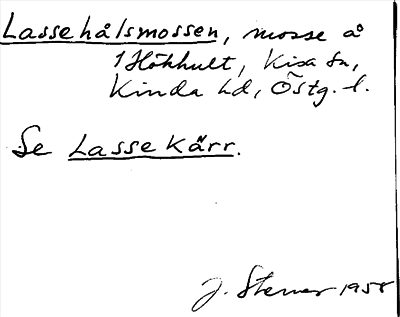 Lassehålsmossen, mosse å
1 Hökhult, Kisa sn,
Kinda hd, Östg. l.
Se Lasse Kärr.
J. Sterner 1958